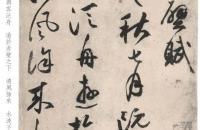 壁賦
秋七月既
泛舟遊於
風徐來水
與客泛舟 遊於赤壁之下 清風徐來 水波不